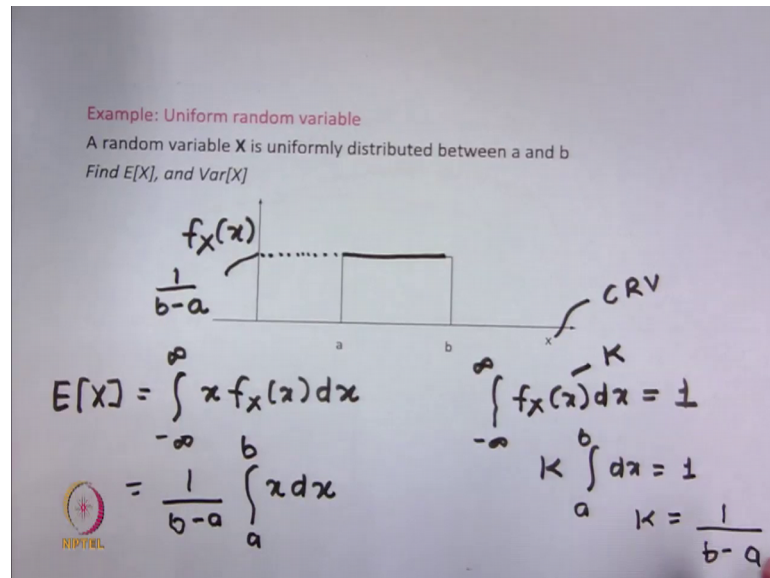 Example: Uniform random variable
A random variable X is uniformly distributed between a and b
Find E[X], and Var[X]
f_X(x)
1/(b-a)
CRV
a b x
E[X] = ∫_{-∞}^{∞} x f_X(x) dx
= 1/(b-a) ∫_a^b x dx
K
∫_{-∞}^{∞} f_X(x) dx = 1
K ∫_a^b dx = 1
K = 1/(b-a)
NPTEL